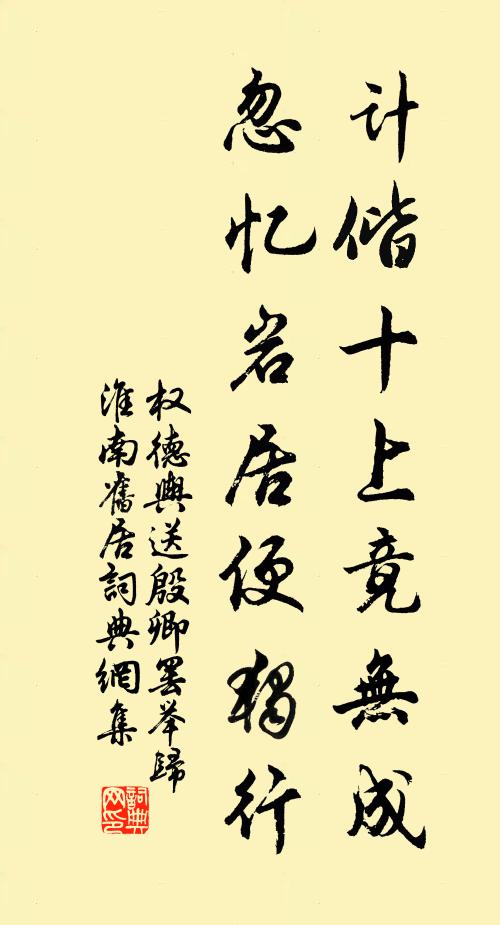 计偕十上竟無成
忽忆岩居便独行
权德輿送殷卿罢举歸
淮南舊居詞典網集
詞典网印